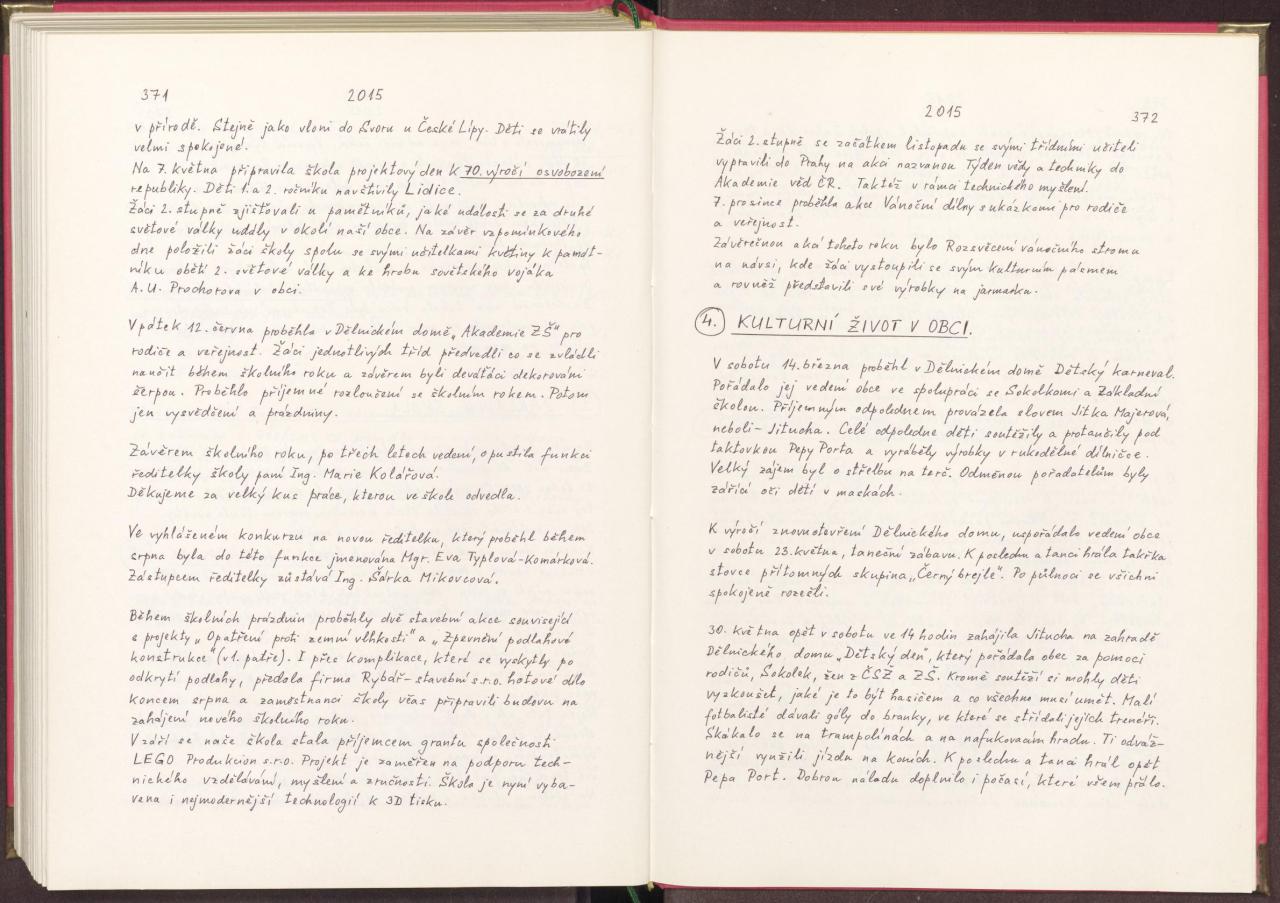 371 2015
v přírodě. Stejně jako vloni do Svoru u České Lípy. Děti se vrátily
velmi spokojené.
Na 7. května připravila škola projektový den k 70. výročí osvobození
republiky. Děti 1. a 2. ročníku navštívily Lidice.
Žáci 2. stupně zjišťovali u pamětníků, jaké události se za druhé
světové války udály v okolí naší obce. Na závěr vzpomínkového
dne položili žáci školy spolu se svými učitelkami květiny k památ-
níku obětí 2. světové války a ke hrobu sovětského vojáka
A. U. Prochorova v obci.
V pátek 12. června proběhla v Dělnickém domě „Akademie ZŠ" pro
rodiče a veřejnost. Žáci jednotlivých tříd předvedli co se zvládli
naučit během školního roku a závěrem byli deváťáci dekorováni
šerpou. Proběhlo příjemné rozloučení se školním rokem. Potom
jen vysvědčení a prázdniny.
Závěrem školního roku, po třech letech vedení, opustila funkci
ředitelky školy paní Ing. Marie Kolářová.
Děkujeme za velký kus práce, kterou ve škole odvedla.
Ve vyhlášeném konkurzu na novou ředitelku, který proběhl během
srpna byla do této funkce jmenována Mgr. Eva Typlová-Komárková.
Zástupcem ředitelky zůstává Ing. Šárka Mikovcová.
Během školních prázdnin proběhly dvě stavební akce související
s projekty „Opatření proti zemní vlhkosti" a „Zpevnění podlahové
konstrukce" (v 1. patře). I přes komplikace, které se vyskytly po
odkrytí podlahy, předala firma Rybář-stavební s.r.o. hotové dílo
koncem srpna a zaměstnanci školy včas připravili budovu na
zahájení nového školního roku.
V září se naše škola stala příjemcem grantu společnosti
LEGO Produkcion s.r.o. Projekt je zaměřen na podporu tech-
nického vzdělávání, myšlení a zručnosti. Škola je nyní vyba-
vena i nejmodernější technologií k 3D tisku.
2015 372
Žáci 2. stupně se začátkem listopadu se svými třídními učiteli
vypravili do Prahy na akci nazvanou Týden vědy a techniky do
Akademie věd ČR. Taktéž v rámci technického myšlení.
7. prosince proběhla akce Vánoční dílny s ukázkami pro rodiče
a veřejnost.
Závěrečnou akcí tohoto roku bylo Rozsvěcení vánočního stromu
na návsi, kde žáci vystoupili se svým kulturním pásmem
a rovněž představili své výrobky na jarmarku.
4. KULTURNÍ ŽIVOT V OBCI.
V sobotu 14. března proběhl v Dělnickém domě Dětský karneval.
Pořádalo jej vedení obce ve spolupráci se Sokolkami a Základní
školou. Příjemným odpolednem provázela slovem Jitka Majerová,
neboli - Jitucha. Celé odpoledne děti soutěžily a protančily pod
taktovkou Pepy Porta a vyráběly výrobky v rukodělné dílničce.
Velký zájem byl o střelbu na terč. Odměnou pořadatelům byly
zářící oči dětí v maskách.
K výročí znovuotevření Dělnického domu, uspořádalo vedení obce
v sobotu 23. května, taneční zábavu. K poslechu a tanci hrála takřka
stovce přítomných skupina „Černý brejle". Po půlnoci se všichni
spokojeně rozešli.
30. května opět v sobotu ve 14 hodin zahájila Jitucha na zahradě
Dělnického domu „Dětský den", který pořádala obec za pomoci
rodičů, Sokolek, žen z ČSŽ a ZŠ. Kromě soutěží si mohly děti
vyzkoušet, jaké je to být hasičem a co všechno musí umět. Malí
fotbalisté dávali góly do branky, ve které se střídali jejich trenéři.
Skákalo se na trampolínách a na nafukovacím hradu. Ti odváž-
nější využili jízdu na koních. K poslechu a tanci hrál opět
Pepa Port. Dobrou náladu doplnilo i počasí, které všem přálo.